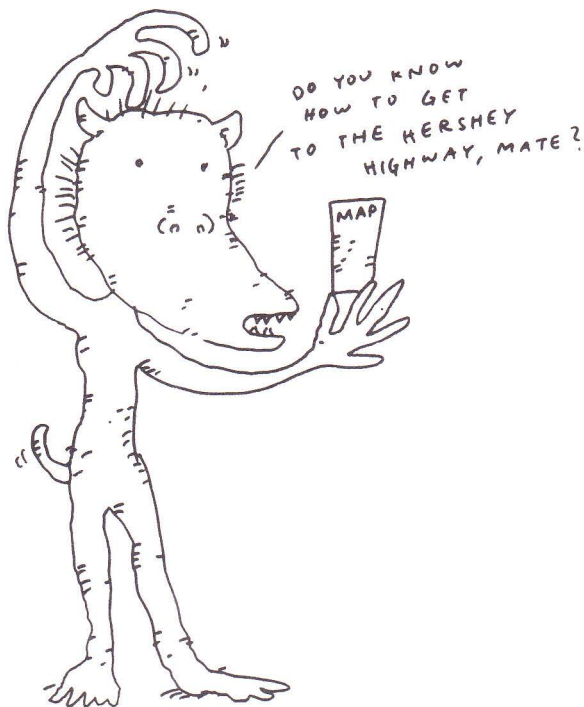 DO YOU KNOW
HOW TO GET
TO THE HERSHEY
HIGHWAY, MATE?
MAP